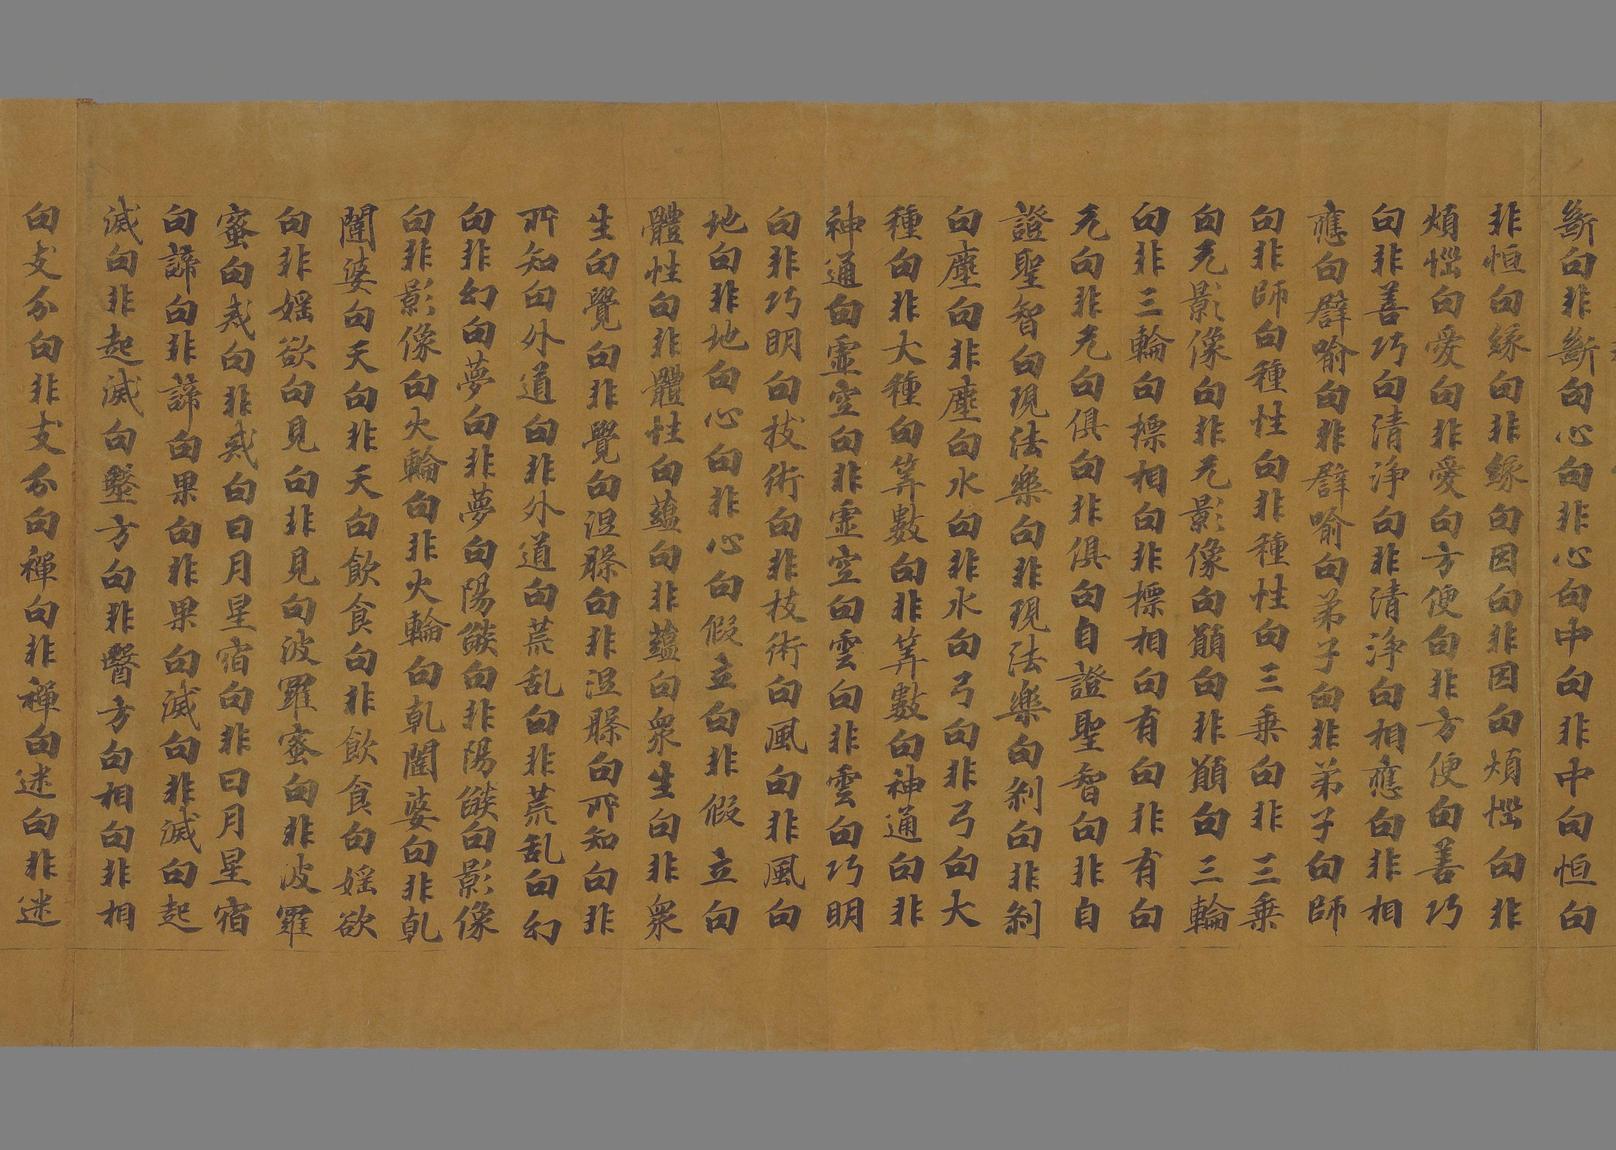 斷句非斷句心句非心句中句非中句恒句
非恒句緣句非緣句因句非因句煩惱句非
煩惱句愛句非愛句方便句非方便句善巧
句非善巧句清淨句非清淨句相應句非相
應句譬喻句非譬喻句弟子句非弟子句師
句非師句種性句非種性句三乘句非三乘
句无影像句非无影像句願句非願句三輪
句非三輪句標相句非標相句有句非有句
无句非无句俱句非俱句自證聖智句非自
證聖智句現法樂句非現法樂句刹句非刹
句塵句非塵句水句非水句弓句非弓句大
種句非大種句筭數句非筭數句神通句非
神通句虛空句非虛空句雲句非雲句巧明
句非巧明句技術句非技術句風句非風句
地句非地句心句非心句假立句非假立句
體性句非體性句蘊句非蘊句衆生句非衆
生句覺句非覺句涅槃句非涅槃句所知句非
所知句外道句非外道句荒乱句非荒乱句幻
句非幻句夢句非夢句陽燄句非陽燄句影像
句非影像句火輪句非火輪句乹闥婆句非乹
闥婆句天句非天句飲食句非飲食句婬欲
句非婬欲句見句非見句波羅蜜句非波羅
蜜句戒句非戒句日月星宿句非日月星宿
句諦句非諦句果句非果句滅句非滅句起
滅句非起滅句醫方句非醫方句相句非相
句支分句非支分句禪句非禪句迷句非迷